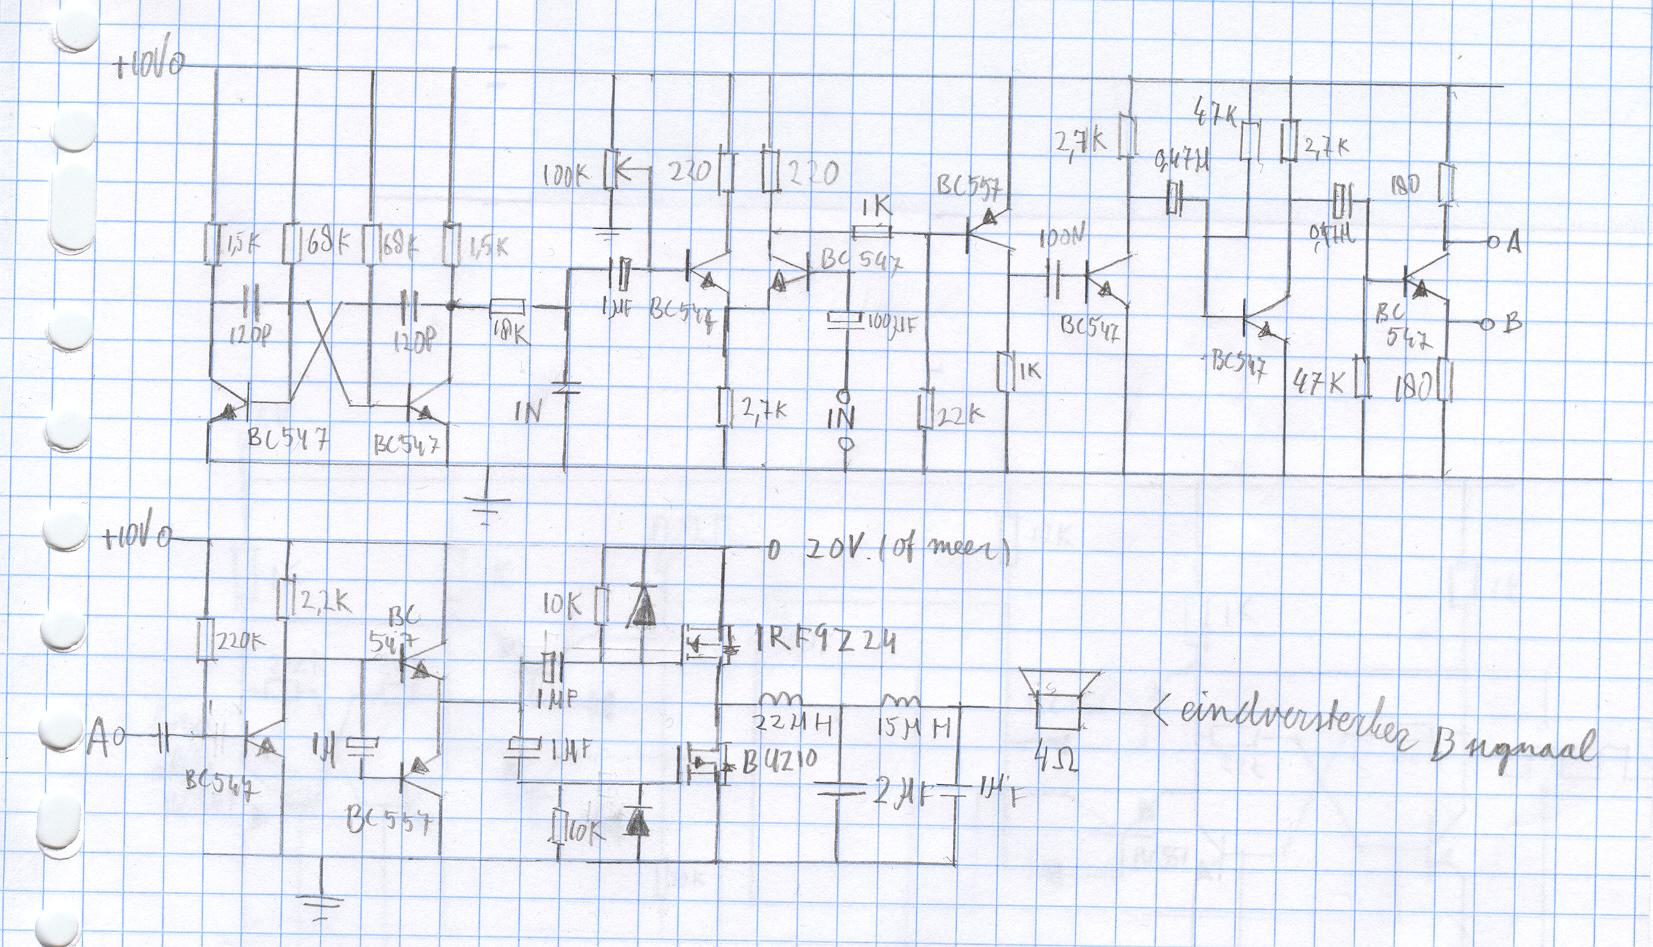 +10V
47K
2,7K
0,47µ
2,7K
100K
220
220
BC557
180
1K
100N
0,47µ
A
1,5K
68K
68K
1,5K
BC547
1µF
BC547
BC547
B
120P
120P
18K
100µF
BC547
BC
547
1N
2,7K
1N
22K
1K
47K
180
BC547
BC547
+10V
20V. (of meer)
2,2K
BC
547
10K
IRF9Z24
220K
1µF
22µH
15µH
eindversterker B signaal
A
1µ
1µF
BUZ10
4Ω
BC547
2µF
1µF
BC557
10K